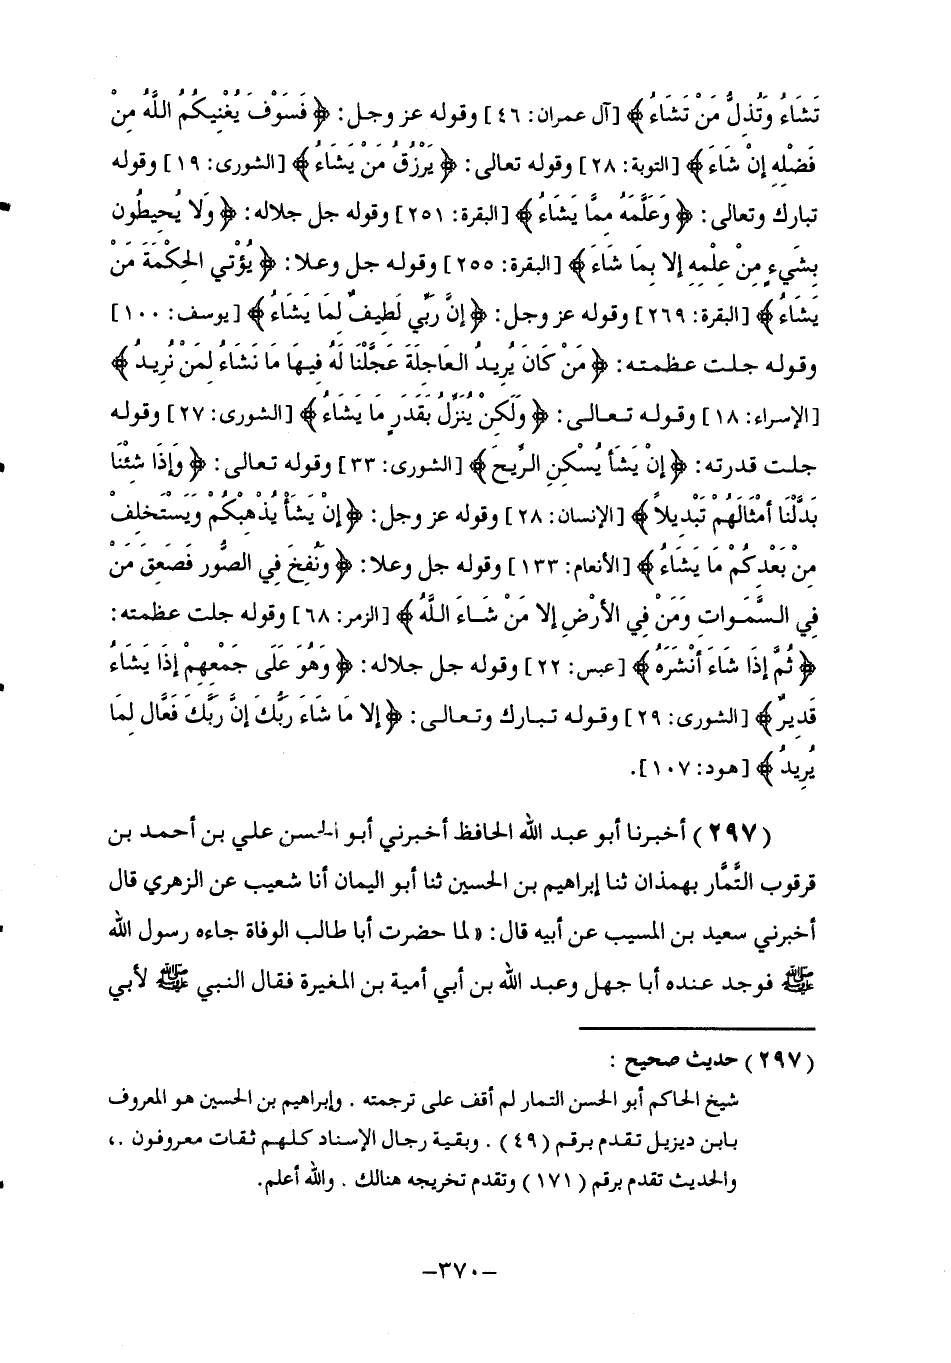 تَشَاءُ وَتُذِلُّ مَنْ تَشَاءُ﴾ [آل عمران: ٤٦] وقوله عز وجل: ﴿فَسَوْفَ يُغْنِيكُمُ اللَّهُ مِنْ
فَضْلِهِ إِنْ شَاءَ﴾ [التوبة: ٢٨] وقوله تعالى: ﴿يَرْزُقُ مَنْ يَشَاءُ﴾ [الشورى: ١٩] وقوله
تبارك وتعالى: ﴿وَعَلَّمَهُ مِمَّا يَشَاءُ﴾ [البقرة: ٢٥١] وقوله جل جلاله: ﴿وَلَا يُحِيطُونَ
بِشَيْءٍ مِنْ عِلْمِهِ إِلا بِمَا شَاءَ﴾ [البقرة: ٢٥٥] وقوله جل وعلا: ﴿يُؤْتِي الحِكْمَةَ مَنْ
يَشَاءُ﴾ [البقرة: ٢٦٩] وقوله عز وجل: ﴿إِنَّ رَبِّي لَطِيفٌ لِمَا يَشَاءُ﴾ [يوسف: ١٠٠]
وقوله جلت عظمته: ﴿مَنْ كَانَ يُرِيدُ العَاجِلَةَ عَجَّلْنَا لَهُ فِيهَا مَا نَشَاءُ لِمَنْ نُرِيدُ﴾
[الإسراء: ١٨] وقوله تعالى: ﴿وَلَكِنْ يُنَزِّلُ بِقَدَرٍ مَا يَشَاءُ﴾ [الشورى: ٢٧] وقوله
جلت قدرته: ﴿إِنْ يَشَأْ يُسْكِنِ الرِّيحَ﴾ [الشورى: ٣٣] وقوله تعالى: ﴿وَإِذَا شِئْنَا
بَدَّلْنَا أَمْثَالَهُمْ تَبْدِيلاً﴾ [الإنسان: ٢٨] وقوله عز وجل: ﴿إِنْ يَشَأْ يُذْهِبْكُمْ وَيَسْتَخْلِفْ
مِنْ بَعْدِكُمْ مَا يَشَاءُ﴾ [الأنعام: ١٣٣] وقوله جل وعلا: ﴿وَنُفِخَ فِي الصُّورِ فَصَعِقَ مَنْ
فِي السَّمَوَاتِ وَمَنْ فِي الأَرْضِ إِلا مَنْ شَاءَ اللَّهُ﴾ [الزمر: ٦٨] وقوله جلت عظمته:
﴿ثُمَّ إِذَا شَاءَ أَنْشَرَهُ﴾ [عبس: ٢٢] وقوله جل جلاله: ﴿وَهُوَ عَلَى جَمْعِهِمْ إِذَا يَشَاءُ
قَدِيرٌ﴾ [الشورى: ٢٩] وقوله تبارك وتعالى: ﴿إِلا مَا شَاءَ رَبُّكَ إِنَّ رَبَّكَ فَعَّالٌ لِمَا
يُرِيدُ﴾ [هود: ١٠٧].
(٢٩٧) أخبرنا أبو عبد الله الحافظ أخبرني أبو الحسن علي بن أحمد بن
قرقوب التَّمَّار بهمذان ثنا إبراهيم بن الحسين ثنا أبو اليمان أنا شعيب عن الزهري قال
أخبرني سعيد بن المسيب عن أبيه قال: «لما حضرت أبا طالب الوفاة جاءه رسول الله
ﷺ فوجد عنده أبا جهل وعبد الله بن أبي أمية بن المغيرة فقال النبي ﷺ لأبي
(٢٩٧) حديث صحيح :
شيخ الحاكم أبو الحسن التمار لم أقف على ترجمته . وإبراهيم بن الحسين هو المعروف
بابن ديزيل تقدم برقم (٤٩) . وبقية رجال الإسناد كلهم ثقات معروفون .،
والحديث تقدم برقم (١٧١) وتقدم تخريجه هنالك . والله أعلم.
–٣٧٠–